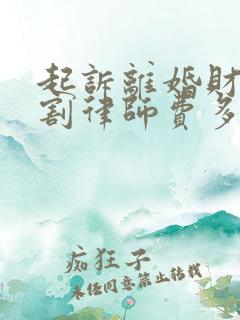 起訴離婚財
割律師費多
痴狂子
未经同意禁止转载